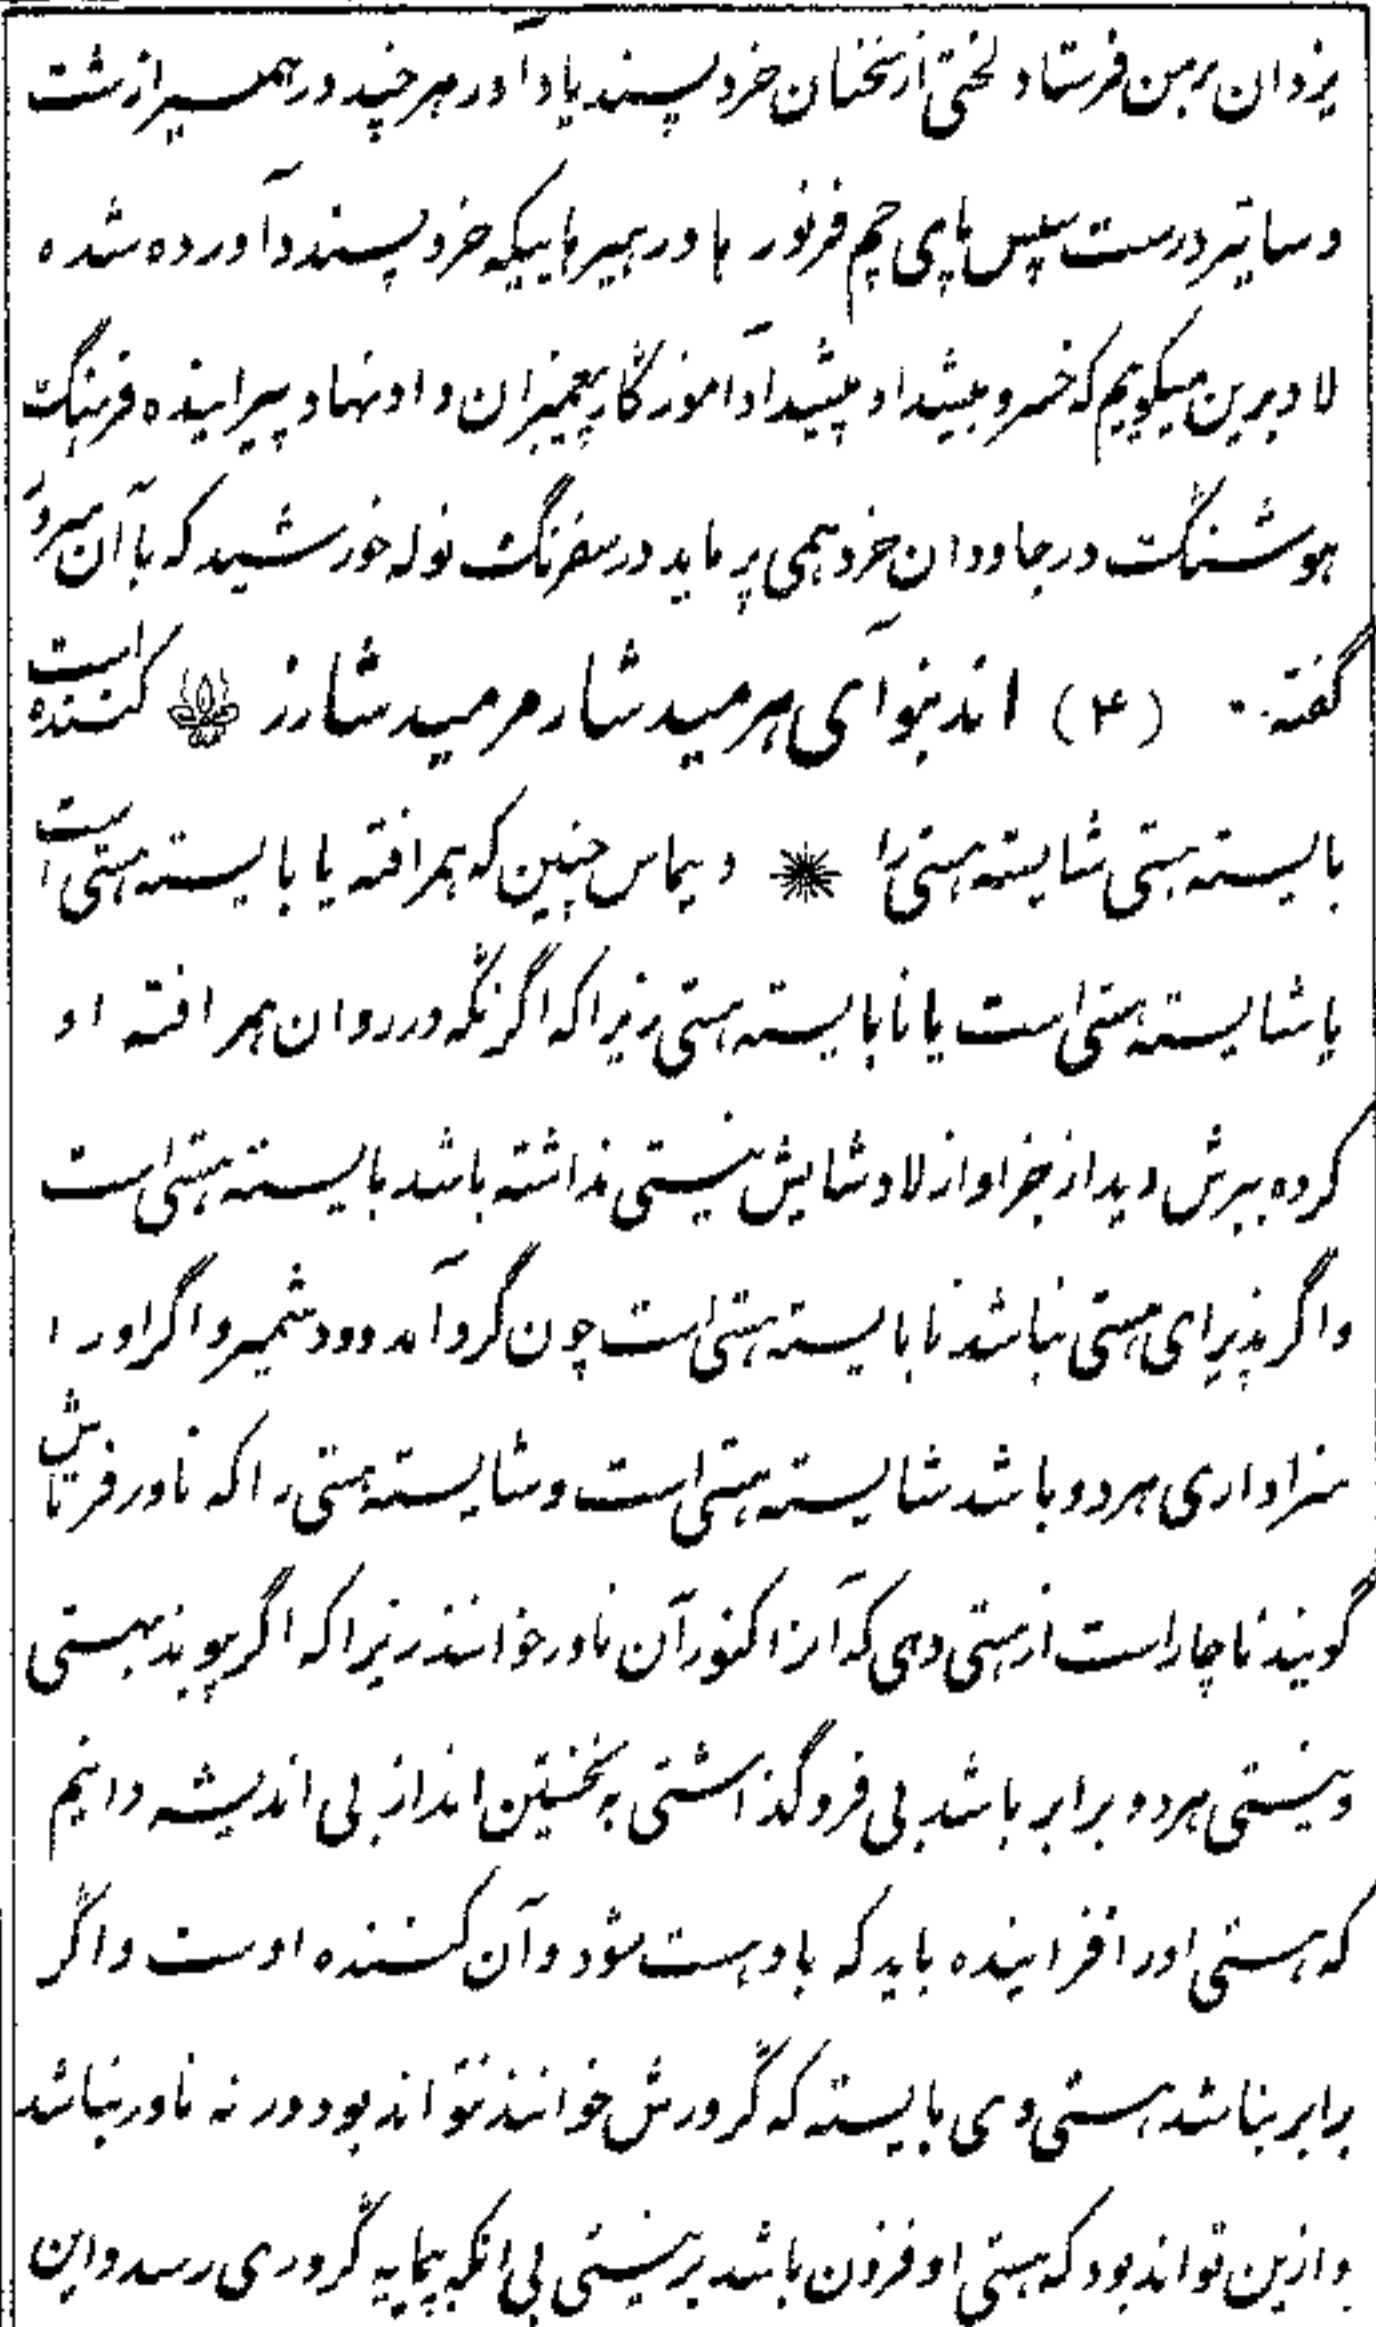 یزدان برمن فرستاد لختی از سخنان خرد پسند یاد آور هر چند در همیراز شت
وساتیر درست سپس پای چم فرنود ها در همیرهاییکه خرد پسند و آورده شده
لاد برین میگویم که خسرو بیشداد پیشداد آموزگار پیغمبران داد نهاد و پیراینده فرهنگ
هوشنگ در جاودان خرد همی پرماید در سفرنگ نوله خورشید که با آن
گفته (۴) اندبنوآی هرمیدشار مرمیدشارز کننده است
بایسته هستی شایسته هستی را دیماس چنین که هر افته یا بایسته هستی است
یا شایسته هستی است یا نابایسته هستی زیرا که اگر نگه در روان هر افته او
کرده ببرش دید از جز او از لاد شایش نیستی نداشته باشد بایسته هستی است
واگر پذیرای هستی نباشد نابایسته هستی است چون گرد آمد دود شمیر واگر اورا
سزاواری هر دو باشد شایسته هستی است وشایسته هستی را که ناور فرتاش
گویند ناچار است از هستی دهی که آنرا کنور آن ناور خوانند زیرا که اگر پیوند بهستی
ونیستی هر دو برابر باشد بی فروگذاشتی به نخستین انداز بی اندیشه دانیم
که هستی اورا فزاینده باید که باو هست شود وآن کننده اوست واگر
برابر نباشد هستی وی بایسته که گرورش خوانند نتواند بود ورنه ناور نباشد
وازین تواند بود که هستی او فزون باشد بر نیستی بی انکه بپایه گروری رسد واین